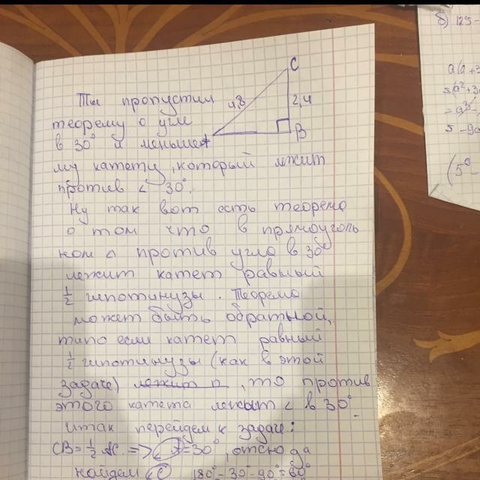 C
Ты пропустил 4,8 2,4
теорему о угле
в 30° и меньшем A B
му катету, который лежит
против ∠ 30°.
Ну так вот есть теорема
о том что в прямоуголь
ном △ против угла в 30°
лежит катет равный
1/2 гипотинузы. Теорема
может быть обратной,
типо если катет равный
1/2 гипотинузы (как в этой
задаче) лежит п, то против
этого катета лежыт ∠ в 30°.
Итак перейдем к задаче:
CB = 1/2 AC => A = 30°, отсюда
найдем C 180° - 30° - 90° = 60°
б) 123-